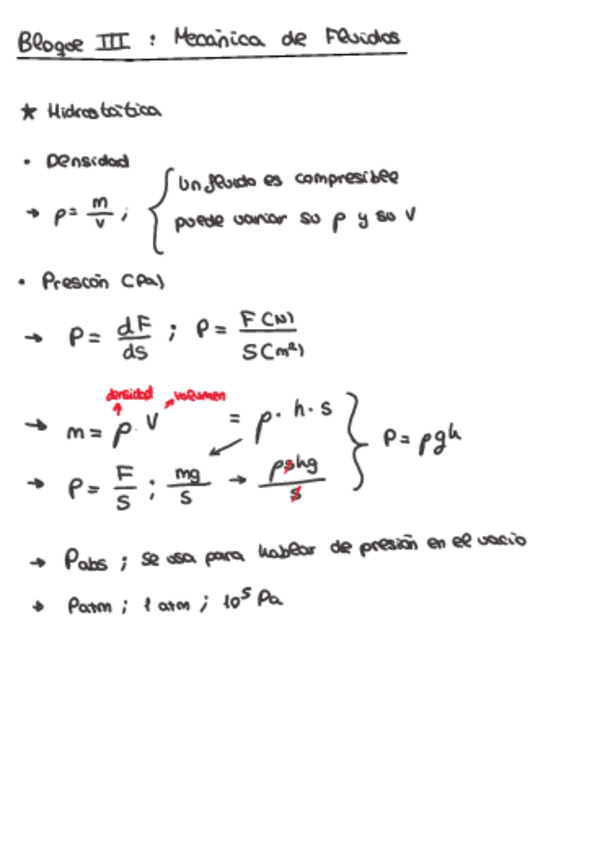 Bloque III : Mecánica de Fluidos
★ Hidrostática
• Densidad
→ ρ = m/v ; { Un fluido es compresible
puede variar su ρ y su V
• Presión (Pa)
→ P = dF/ds ; P = F(N)/S(m²)
densidad volumen
→ m = ρ · V = ρ · h · s
→ P = F/S ; mg/S → ρshg/s } P = ρgh
→ Pabs ; se usa para hablar de presión en el vacio
→ Patm ; 1 atm ; 10⁵ Pa